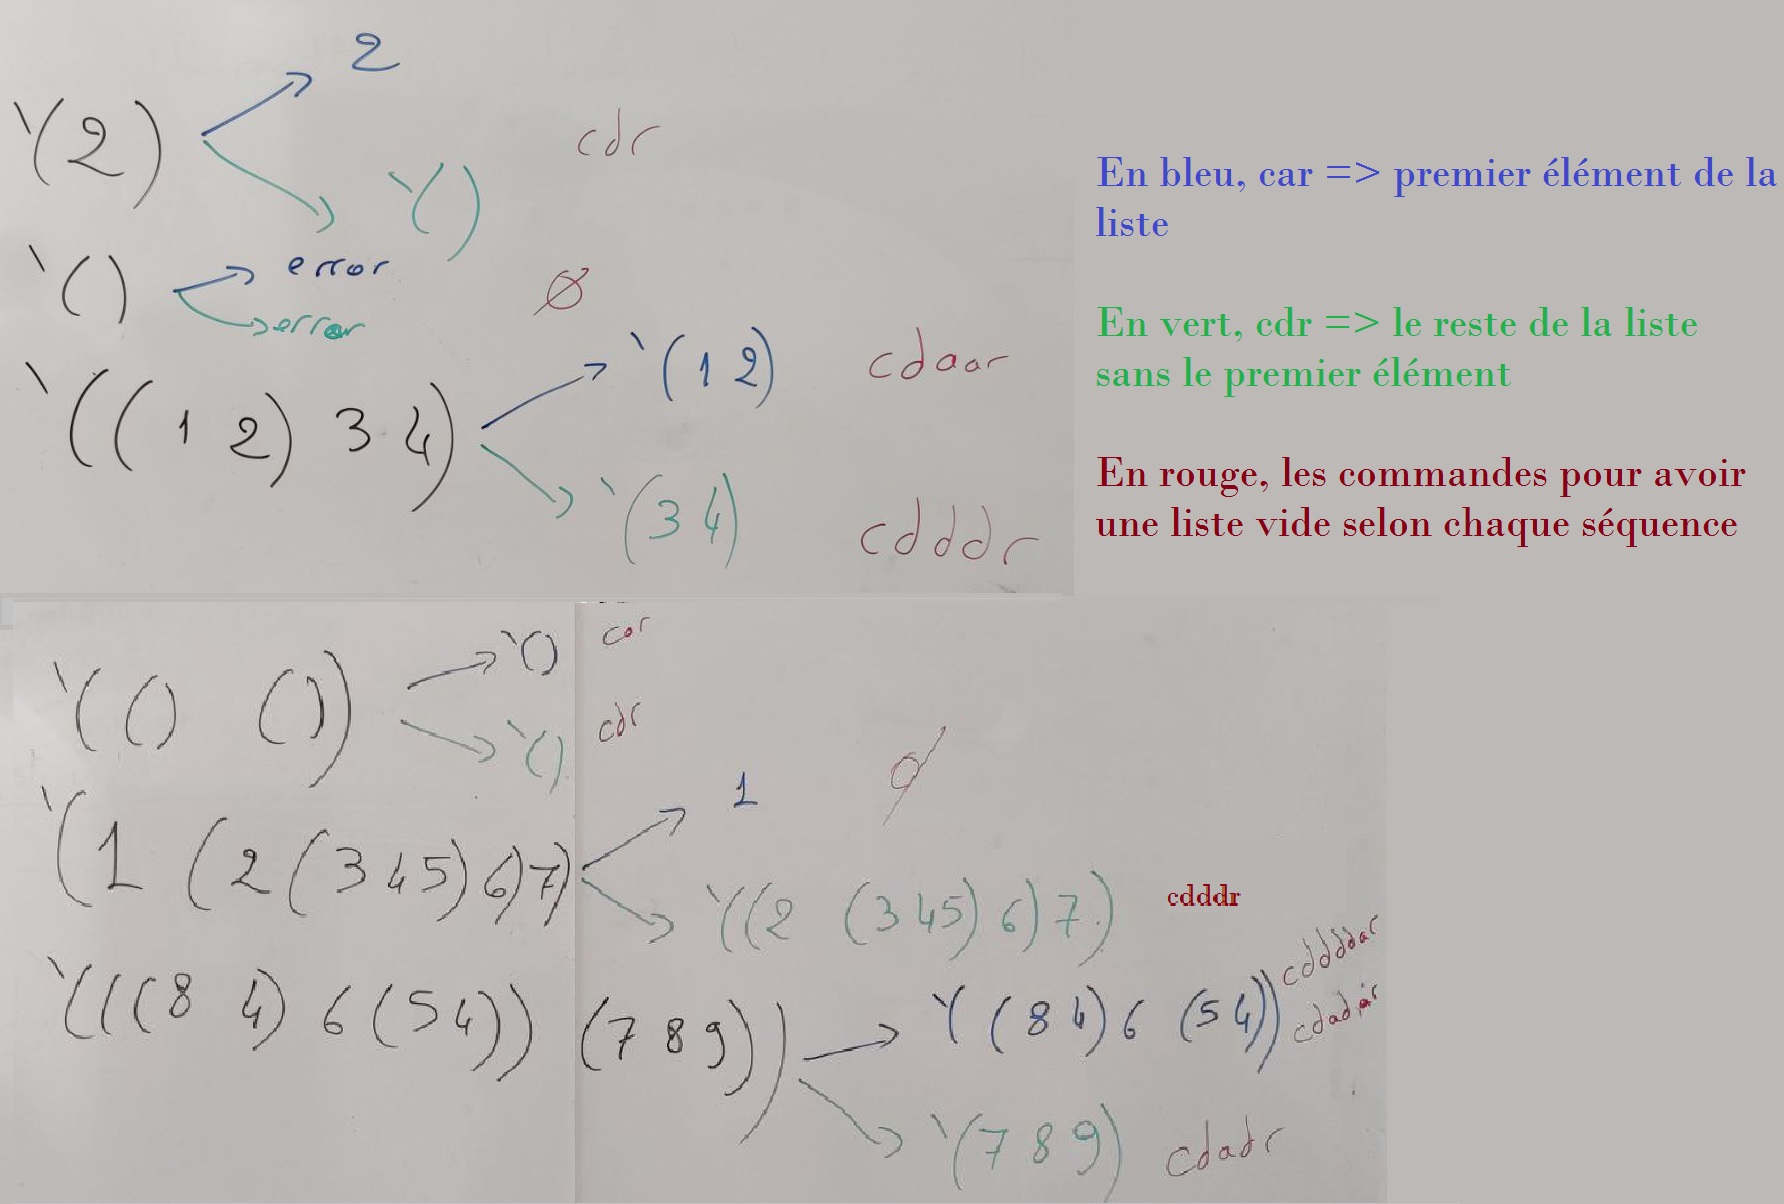 2
`(2)
cdr
`()
`()
error
error
Ø
`((1 2) 3 4)
`(1 2)
cdaar
`(3 4)
cdddr
En bleu, car => premier élément de la
liste
En vert, cdr => le reste de la liste
sans le premier élément
En rouge, les commandes pour avoir
une liste vide selon chaque séquence
`(() ())
`()
car
`()
cdr
`(1 (2 (3 4 5) 6) 7)
1
Ø
`((2 (3 4 5) 6) 7)
cdddr
`(((8 4) 6 (5 4)) (7 8 9))
`((8 4) 6 (5 4))
cdddar
cdadar
`(7 8 9)
cdadr